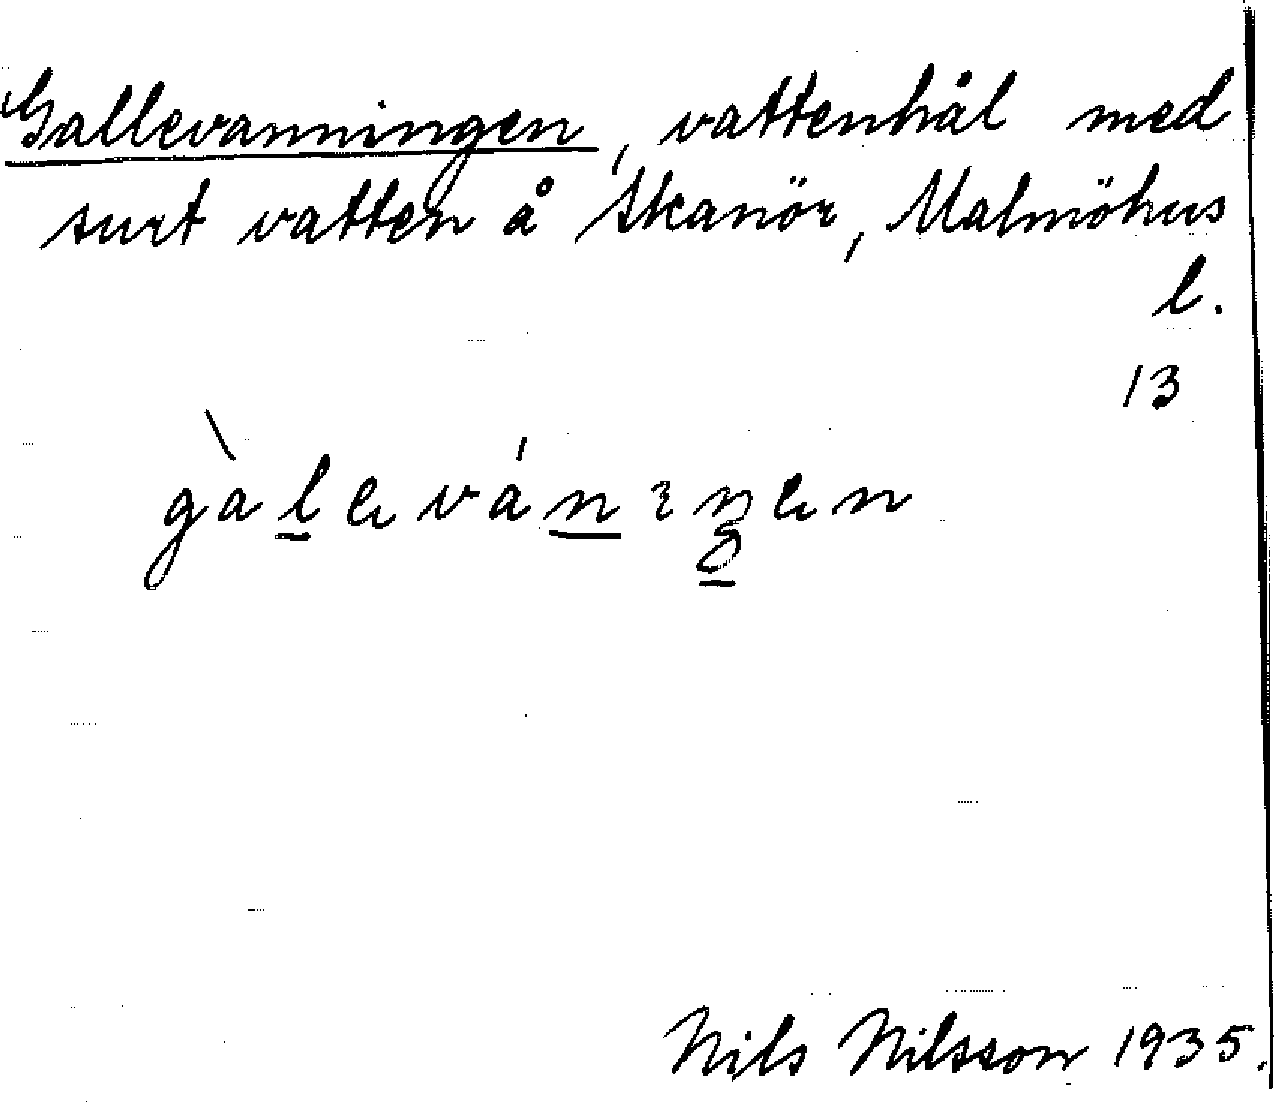 Gallevanningen, vattenhål med
surt vatten å Skanör, Malmöhus
l.
13
gàlevánıŋen
Nils Nilsson 1935.